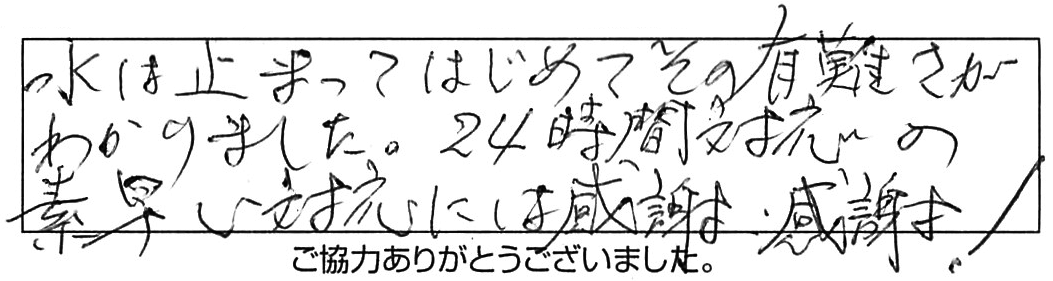 水は止まってはじめてその有難さが
わかりました。24時間対応の
素早い対応には感謝、感謝!
ご協力ありがとうございました。